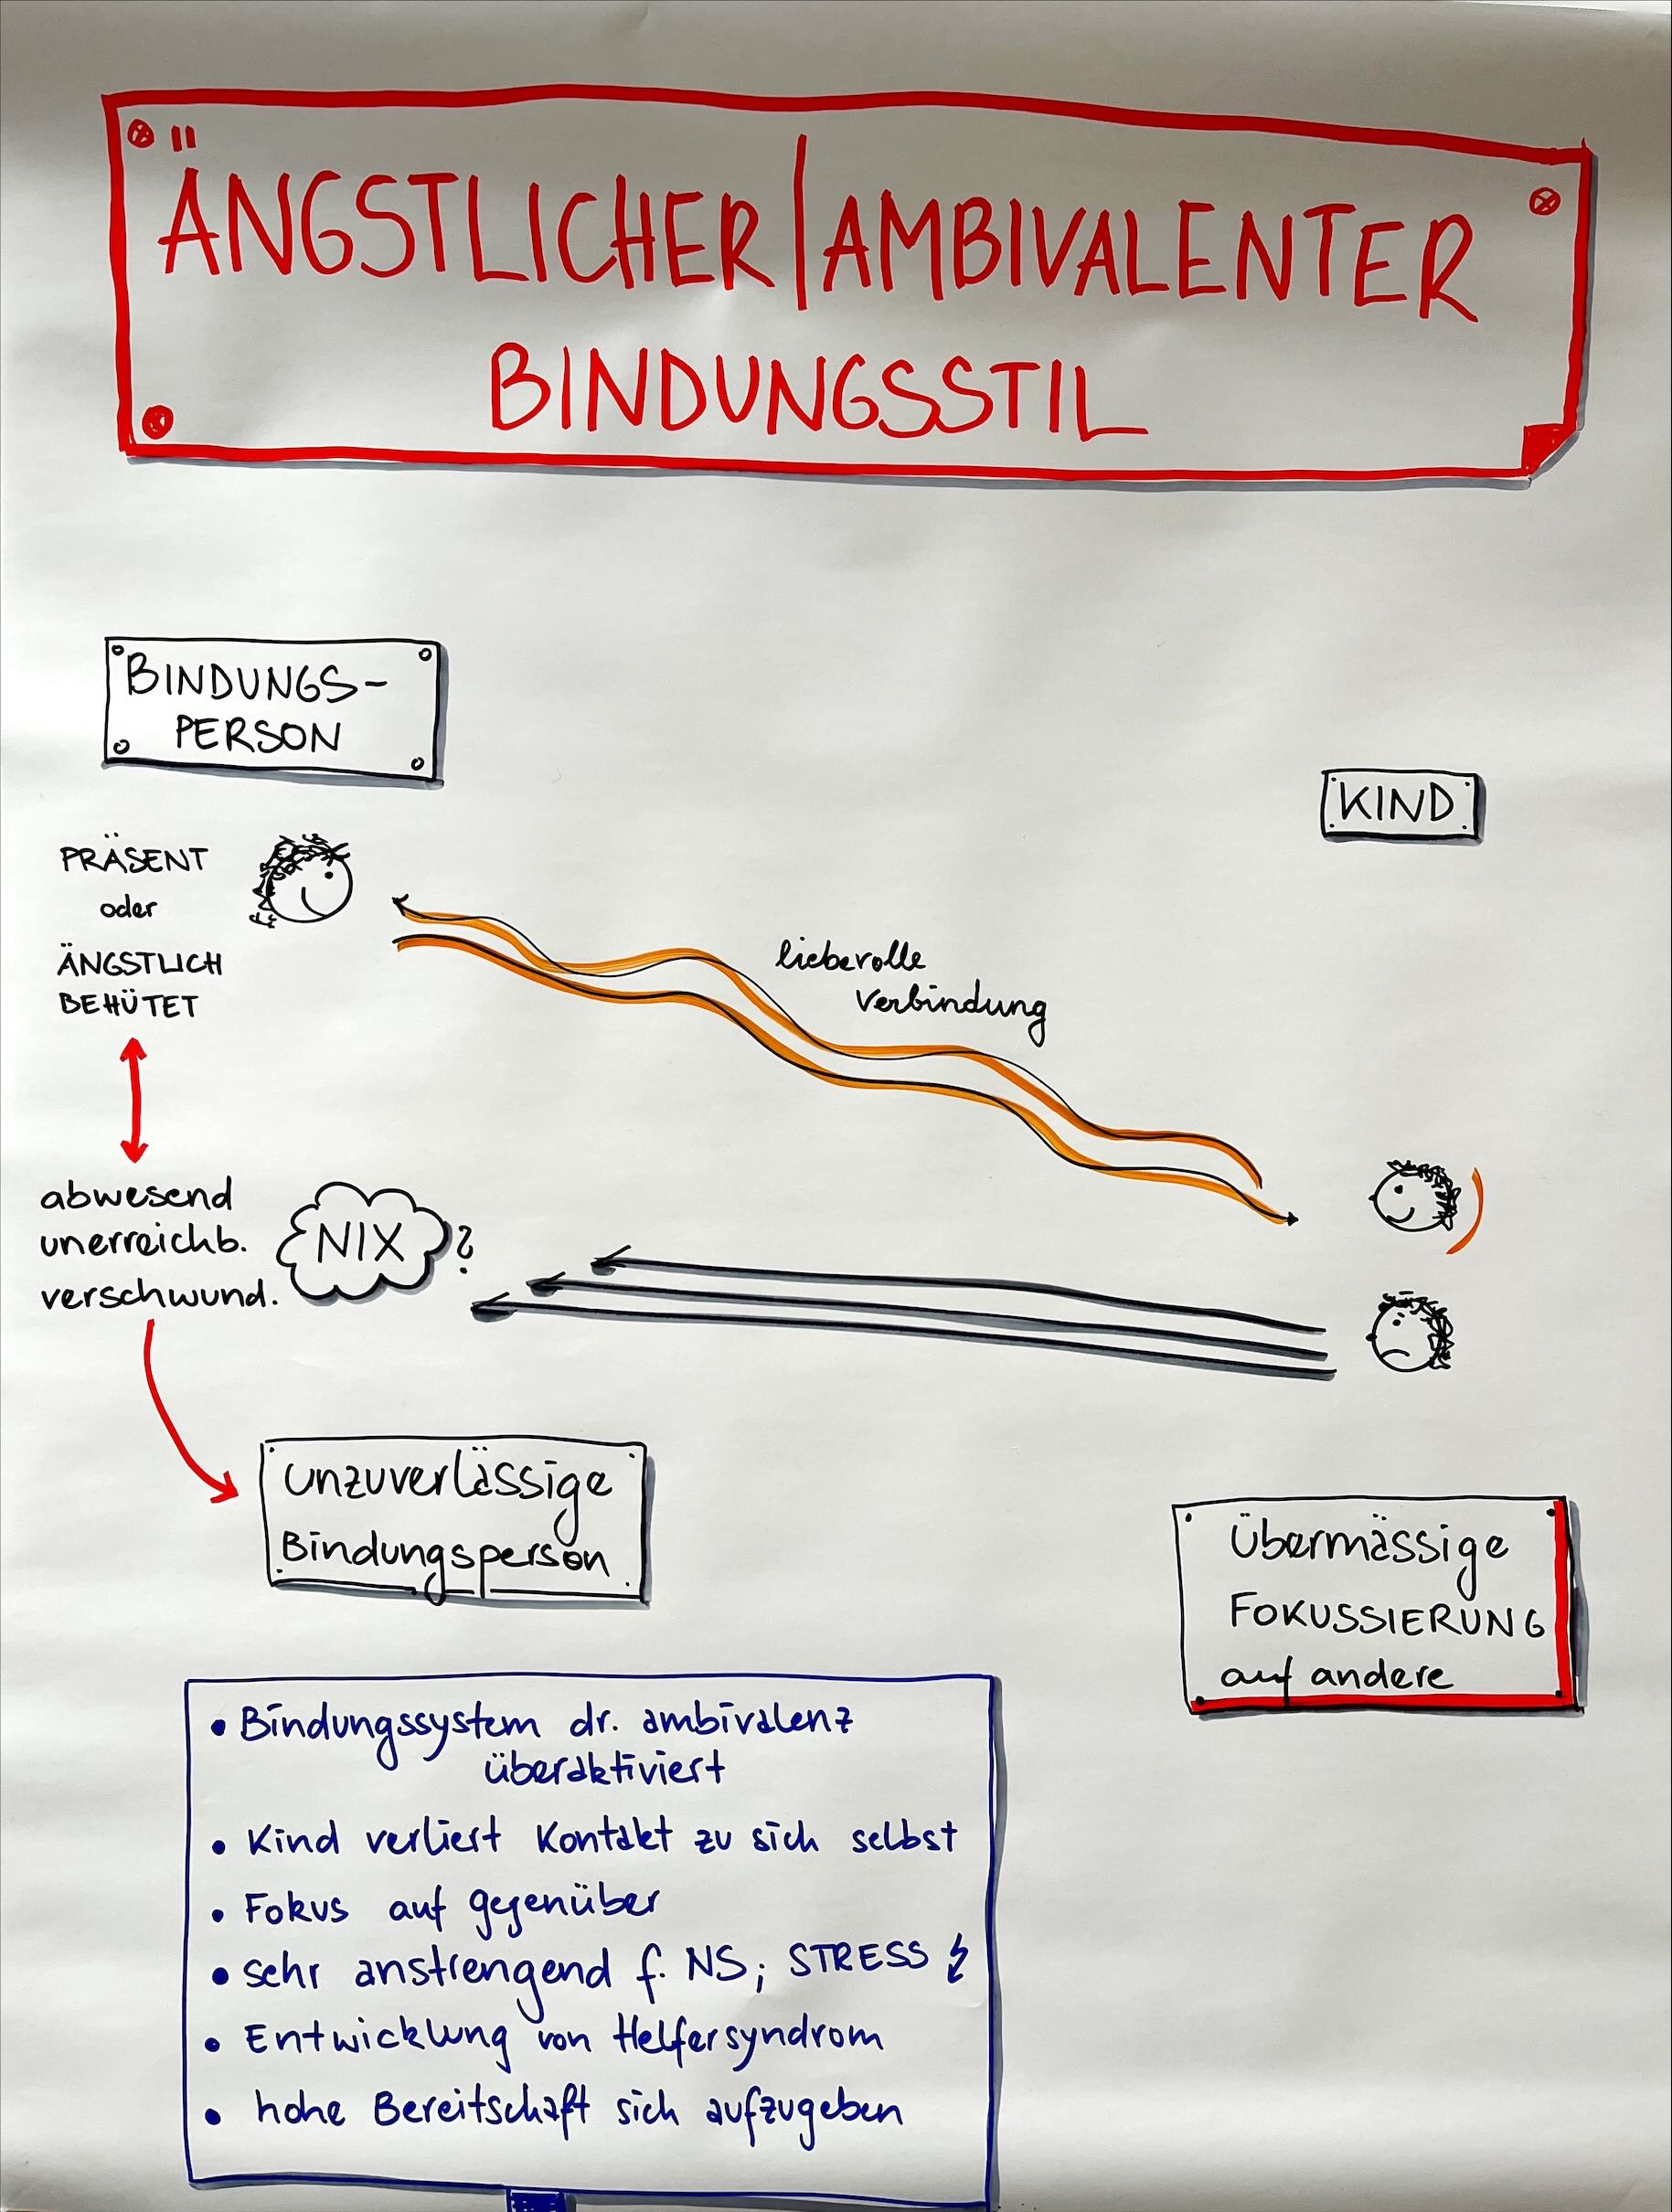 ÄNGSTLICHER | AMBIVALENTER
BINDUNGSSTIL
BINDUNGS-
PERSON
KIND
PRÄSENT
oder
ÄNGSTLICH
BEHÜTET
liebevolle
Verbindung
abwesend
unerreichb.
verschwund.
NIX ?
Unzuverlässige
Bindungsperson
Übermässige
FOKUSSIERUNG
auf andere
• Bindungssystem dr. ambivalenz
überaktiviert
• Kind verliert Kontakt zu sich selbst
• Fokus auf gegenüber
• sehr anstrengend f. NS; STRESS
• Entwicklung von Helfersyndrom
• hohe Bereitschaft sich aufzugeben